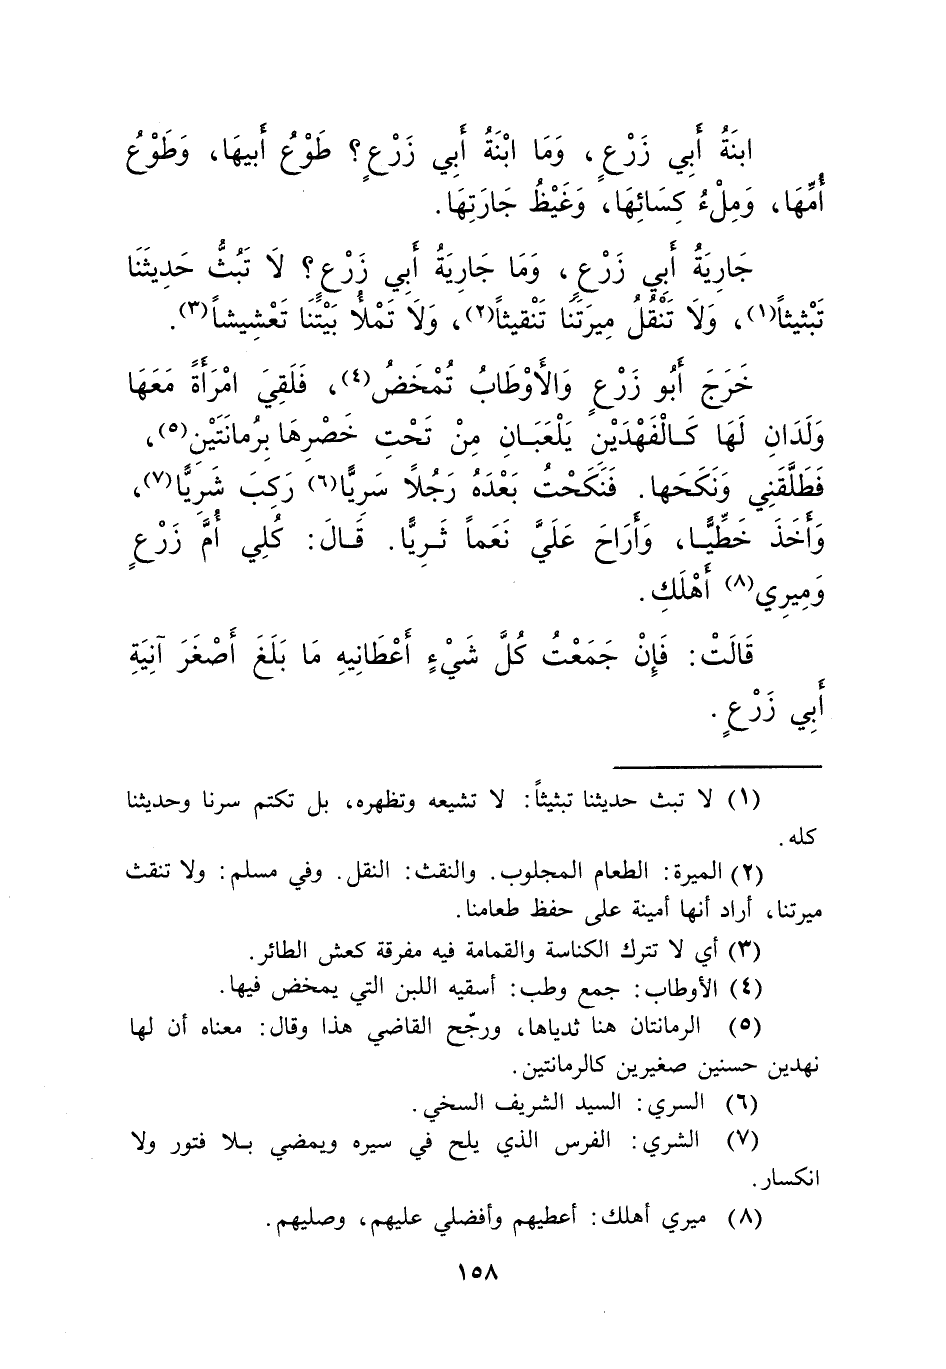 ابنَةُ أَبِي زَرْعٍ، وَمَا ابْنَةُ أَبِي زَرْعٍ؟ طَوْعُ أَبيهَا، وَطَوْعُ
أُمِّهَا، وَمِلْءُ كِسَائِهَا، وَغَيْظُ جَارَتِهَا.
جَارِيَةُ أَبي زَرْعٍ، وَمَا جَارِيَةُ أَبي زَرْعٍ؟ لَا تَبُثُّ حَدِيثَنَا
تَبْثيثاً(١)، وَلَا تَنْقُلُ مِيرَتَنَا تَنْقيثاً(٢)، وَلَا تَملأُ بَيْتَنَا تَعْشيشاً(٣).
خَرَجَ أَبُو زَرْعٍ وَالأَوْطَابُ تُمْخَضُ(٤)، فَلَقِيَ امْرَأَةً مَعَهَا
وَلَدَانِ لَهَا كَالْفَهْدَيْنِ يَلْعَبَانِ مِنْ تَحْتِ خَصْرِهَا بِرُمانَتَيْنِ(٥)،
فَطَلَّقَني وَنَكَحَها. فَنَكَحْتُ بَعْدَهُ رَجُلاً سَرِيًّا(٦) رَكِبَ شَرِيًّا(٧)،
وَأَخَذَ خَطِّيًّا، وَأَرَاحَ عَلَيَّ نَعَماً ثَرِيًّا. قَالَ: كُلِي أُمَّ زَرْعٍ
وَمِيرِي(٨) أَهْلَكِ.
قَالَتْ: فَإِنْ جَمَعْتُ كُلَّ شَيْءٍ أَعْطَانِيهِ مَا بَلَغَ أَصْغَرَ آنِيَةِ
أَبِي زَرْعٍ.
(١) لا تبث حديثنا تبثيثاً: لا تشيعه وتظهره، بل تكتم سرنا وحديثنا
كله.
(٢) الميرة: الطعام المجلوب. والنقث: النقل. وفي مسلم: ولا تنقث
ميرتنا، أراد أنها أمينة على حفظ طعامنا.
(٣) أي لا تترك الكناسة والقمامة فيه مفرقة كعش الطائر.
(٤) الأوطاب: جمع وطب: أسقيه اللبن التي يمخض فيها.
(٥) الرمانتان هنا ثدياها، ورجّح القاضي هذا وقال: معناه أن لها
نهدين حسنين صغيرين كالرمانتين.
(٦) السري: السيد الشريف السخي.
(٧) الشري: الفرس الذي يلح في سيره ويمضي بلا فتور ولا
انكسار.
(٨) ميري أهلك: أعطيهم وأفضلي عليهم، وصليهم.
١٥٨